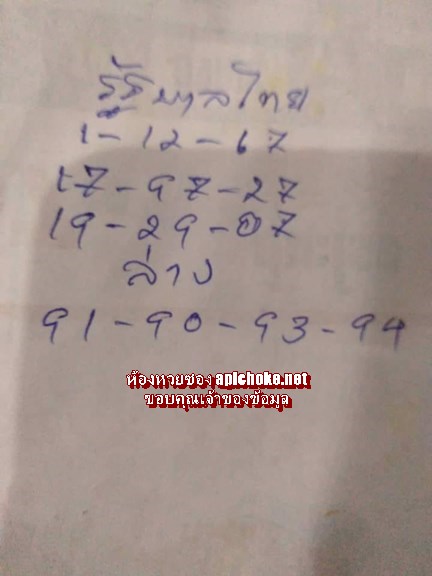 รัฐบาลไทย
1-12-67
17-97-27
19-29-07
ล่าง
91-90-93-94
ห้องหวยซอง apichoke.net
ขอบคุณเจ้าของข้อมูล